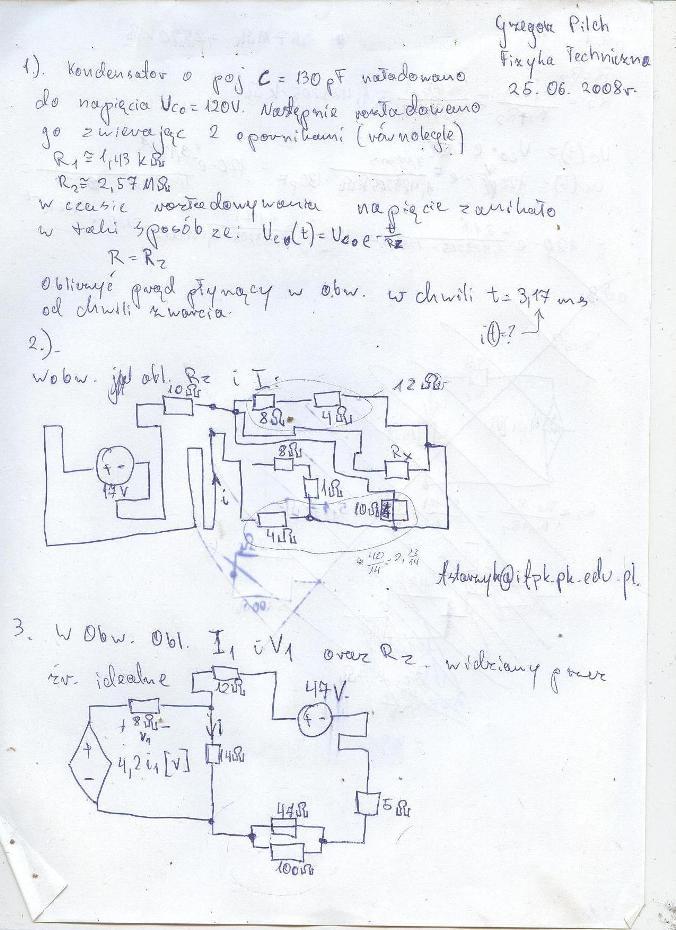 Grzegorz Pilch
Fizyka Techniczna
25.06.2008r.
1). Kondensator o poj C = 130 pF naładowano
do napięcia Uco = 120V. Następnie rozładowano
go zwierając 2 opornikami (równolegle)
R1 ≅ 1,43 kΩ
R2 ≅ 2,57 MΩ
w czasie rozładowywania napięcie zanikało
w taki sposób że: Uco(t) = Uco e -t/RZ
R = Rz
Obliczyć prąd płynący w obw. w chwili t = 3,17 ms
od chwili zwarcia.
i(t)=?
2.).
w obw. obl. Rz i I:
12Ω
10Ω
8Ω
4Ω
Rx
8Ω
+ -
17V
i
1Ω
10Ω
4Ω
40/14
ifpk.pk.edu.pl.
3. W Obw. Obl. I1 i V1 oraz Rz widziany przez
źr. idealne
12Ω
47V
+ 8Ω -
V1
i
+ -
+
4,2 i1 [V]
-
14Ω
5Ω
47Ω
100Ω